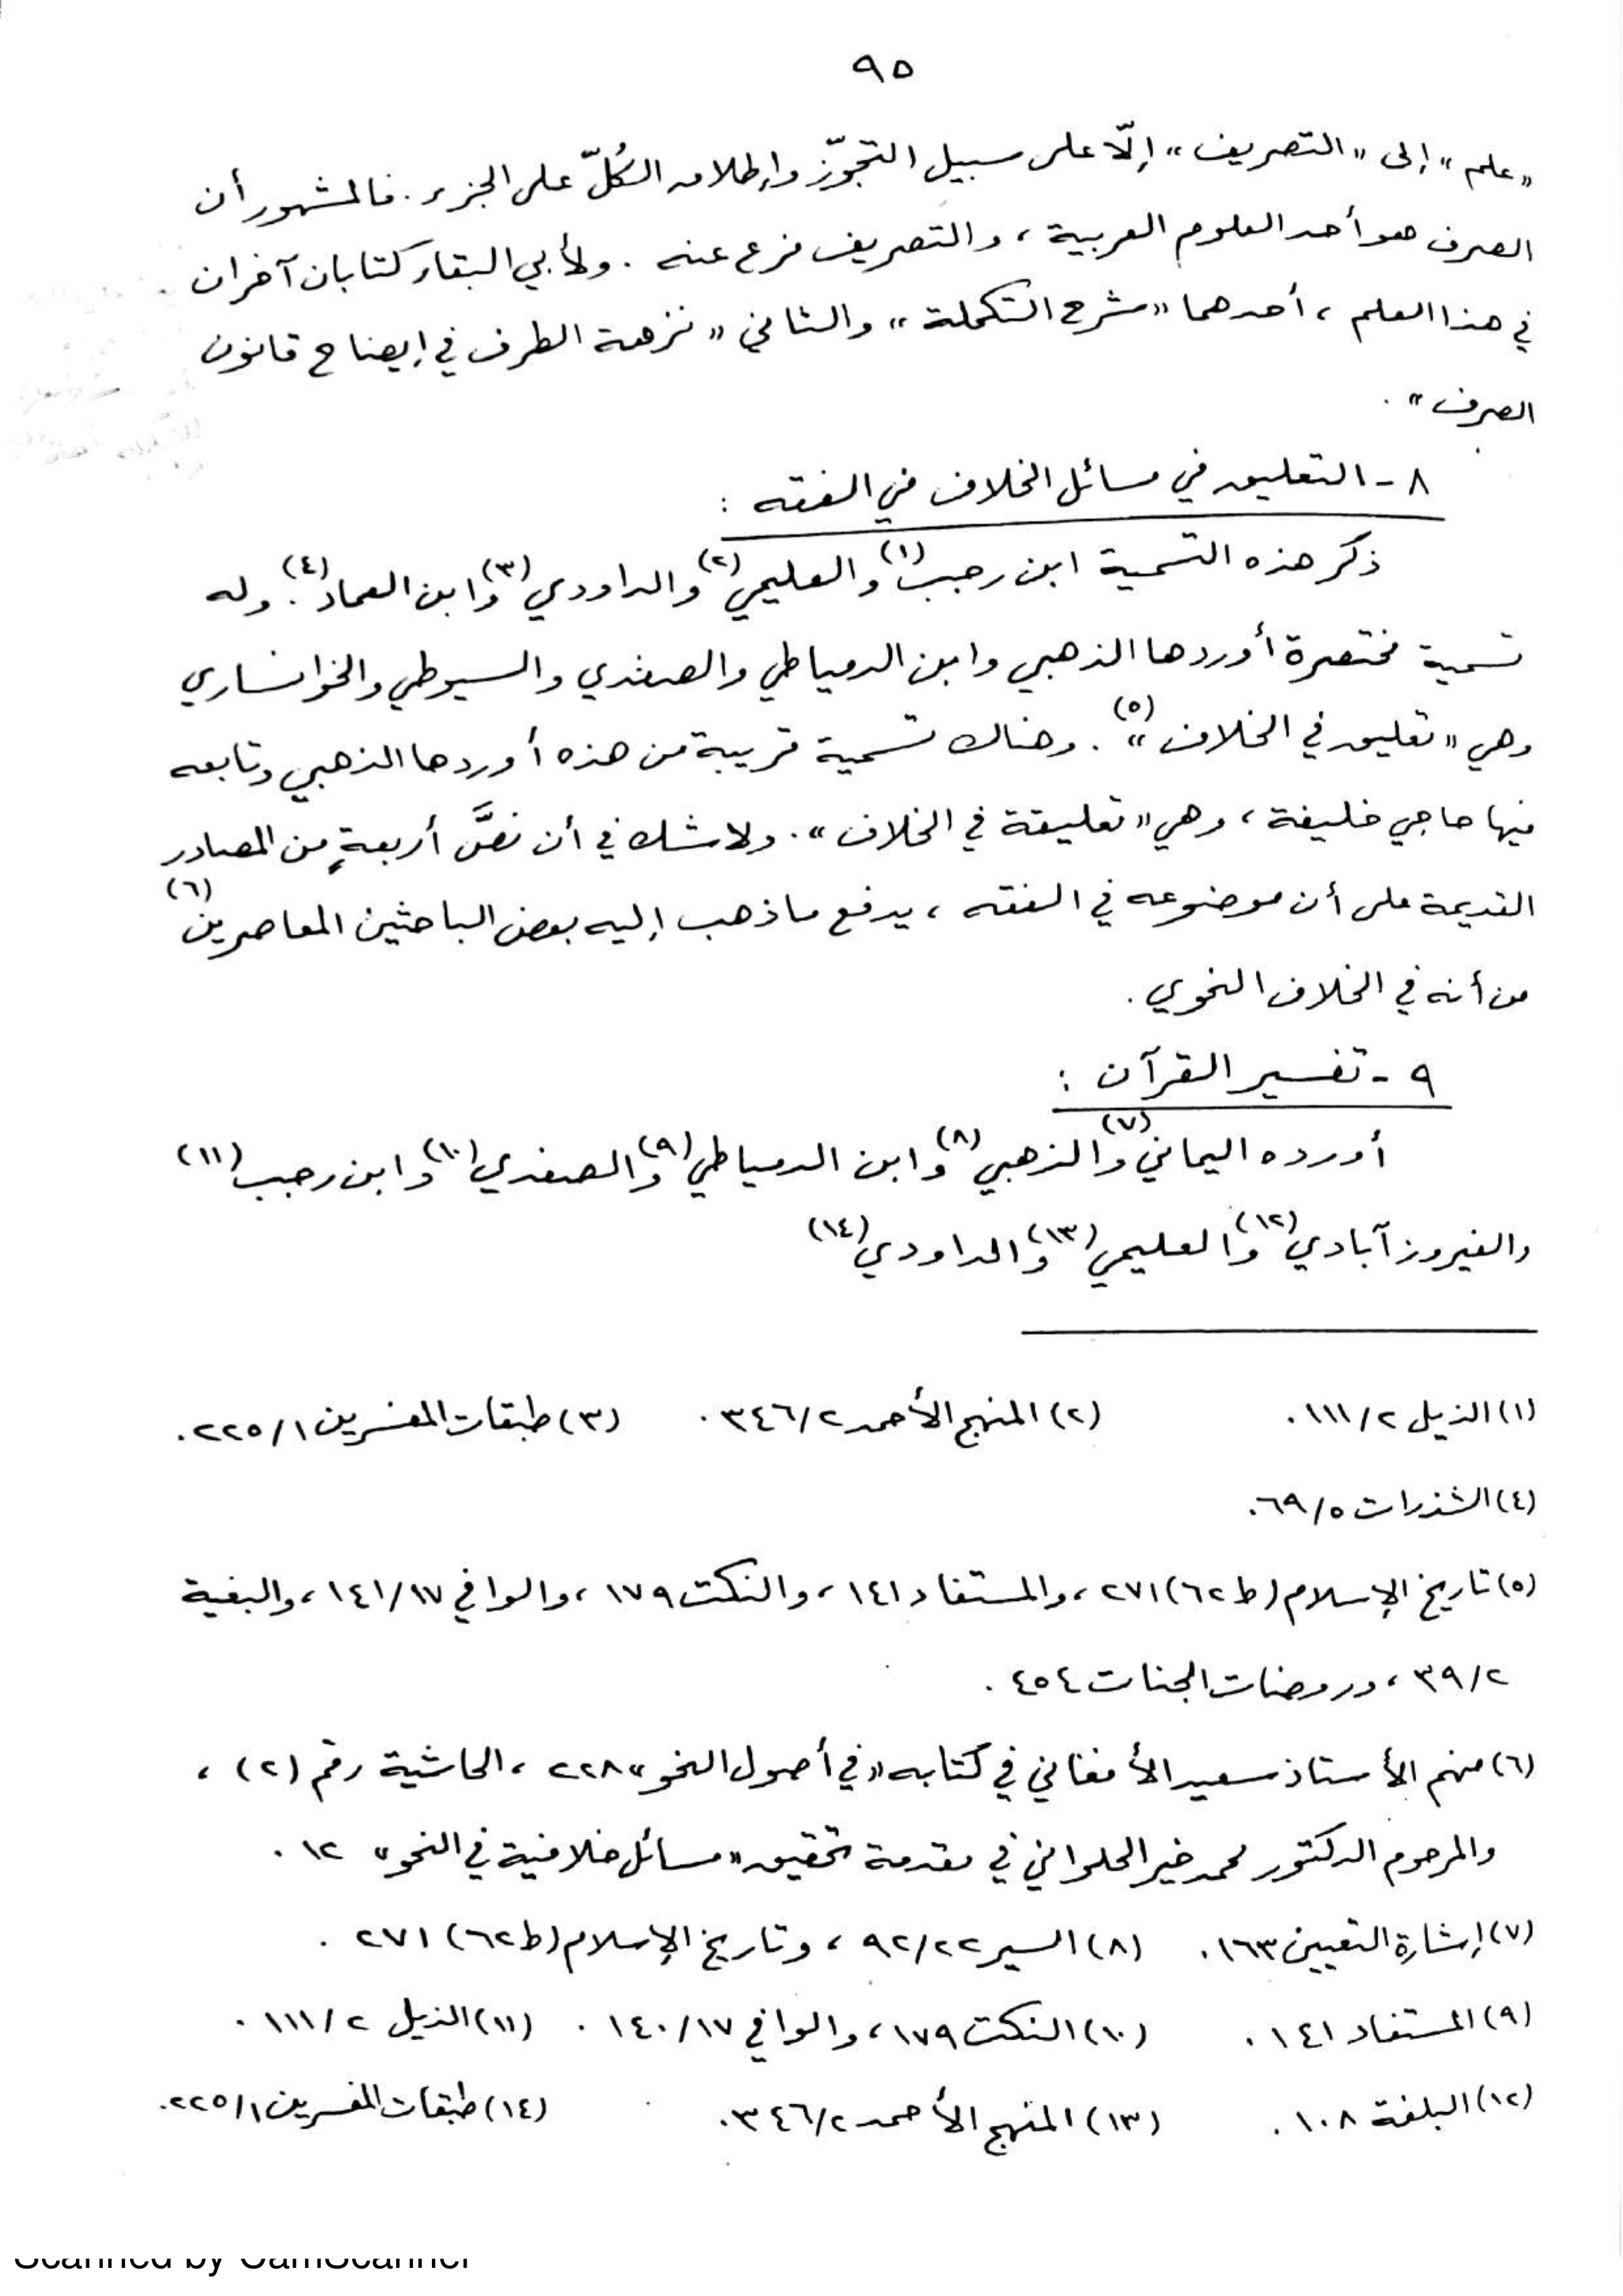 ٩٥
«علم» إلى «التصريف» إلّا على سبيل التجوّز وإطلاق الكُلّ على الجزء. فالمشهور أن
الصرف هو أحد العلوم العربية، والتصريف فرع عنه. ولأبي البقاء كتابان آخران
في هذا العلم، أحدهما «شرح التكملة» والثاني «نزهة الطرف في إيضاح قانون
الصرف».
٨ - التعليق في مسائل الخلاف في الفقه :
ذكر هذه التسمية ابن رجب(١) والعليمي(٢) والداودي(٣) وابن العماد(٤). وله
تسمية مختصرة أوردها الذهبي وابن الدمياطي والصفدي والسيوطي والخوانساري
وهي «تعليق في الخلاف»(٥). وهناك تسمية قريبة من هذه أوردها الذهبي وتابعه
فيها حاجي خليفة، وهي «تعليقة في الخلاف». ولا شك في أن نصَّ أربعةٍ من المصادر
القديمة على أن موضوعه في الفقه، يدفع ما ذهب إليه بعض الباحثين المعاصرين(٦)
من أنه في الخلاف النحوي.
٩ - تفسير القرآن :
أورده اليماني(٧) والذهبي(٨) وابن الدمياطي(٩) والصفدي(١٠) وابن رجب(١١)
والفيروزآبادي(١٢) والعليمي(١٣) والداودي(١٤)
(١) الذيل ١١١/٢. (٢) المنهج الأحمد ٣٤٦/٢. (٣) طبقات المفسرين ٢٢٥/١.
(٤) الشذرات ٦٩/٥.
(٥) تاريخ الإسلام (ط٦٢) ٢٧١، والمستفاد ١٤١، والنكت ١٧٩، والوافي ١٤١/١٧، والبغية
٣٩/٢، وروضات الجنات ٤٥٤.
(٦) منهم الأستاذ سعيد الأفغاني في كتابه «في أصول النحو» ٢٢٨، الحاشية رقم (٢)،
والمرحوم الدكتور محمد خير الحلواني في مقدمة تحقيق «مسائل خلافية في النحو» ١٢.
(٧) إشارة التعيين ١٦٣. (٨) السير ٩٢/٢٢، وتاريخ الإسلام (ط٦٢) ٢٧١.
(٩) المستفاد ١٤١. (١٠) النكت ١٧٩، والوافي ١٤٠/١٧. (١١) الذيل ١١١/٢.
(١٢) البلغة ١٠٨. (١٣) المنهج الأحمد ٣٤٦/٢. (١٤) طبقات المفسرين ٢٢٥/١.
Scanned by CamScanner